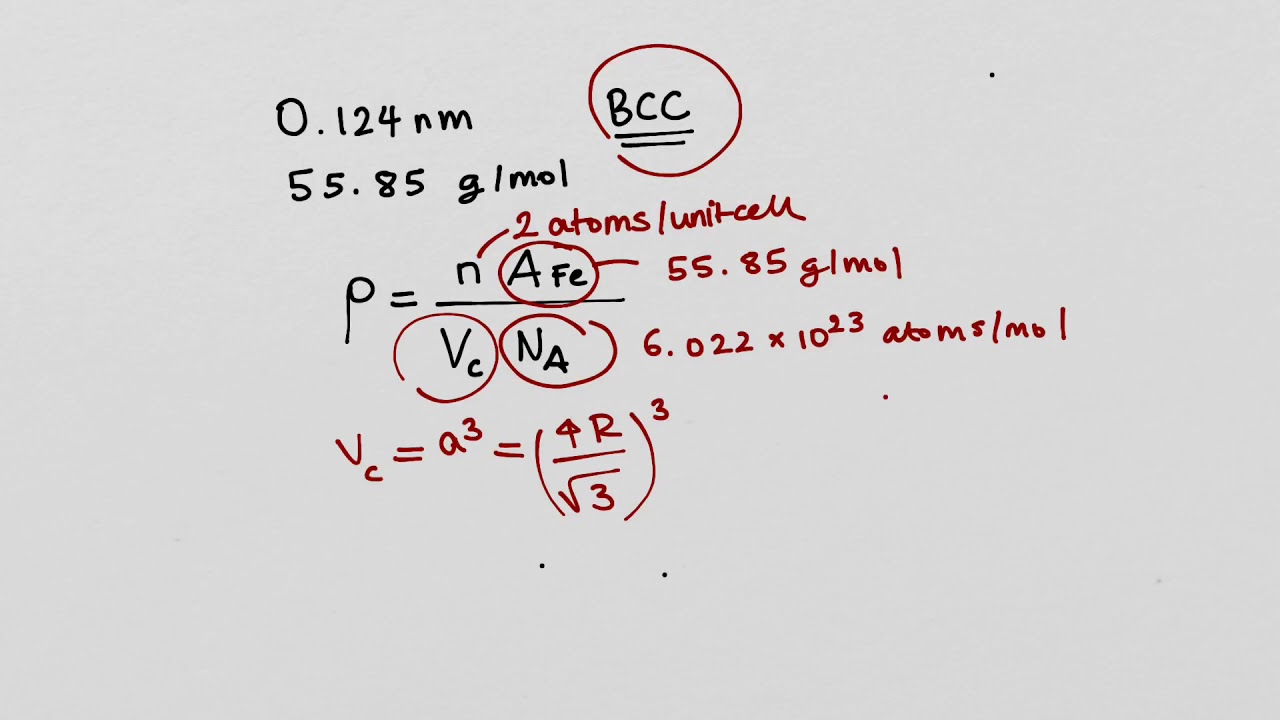 0.124 nm
BCC
55.85 g/mol
2 atoms/unitcell
ρ = n A Fe / Vc NA
55.85 g/mol
6.022 × 10²³ atoms/mol
Vc = a³ = (4R / √3)³